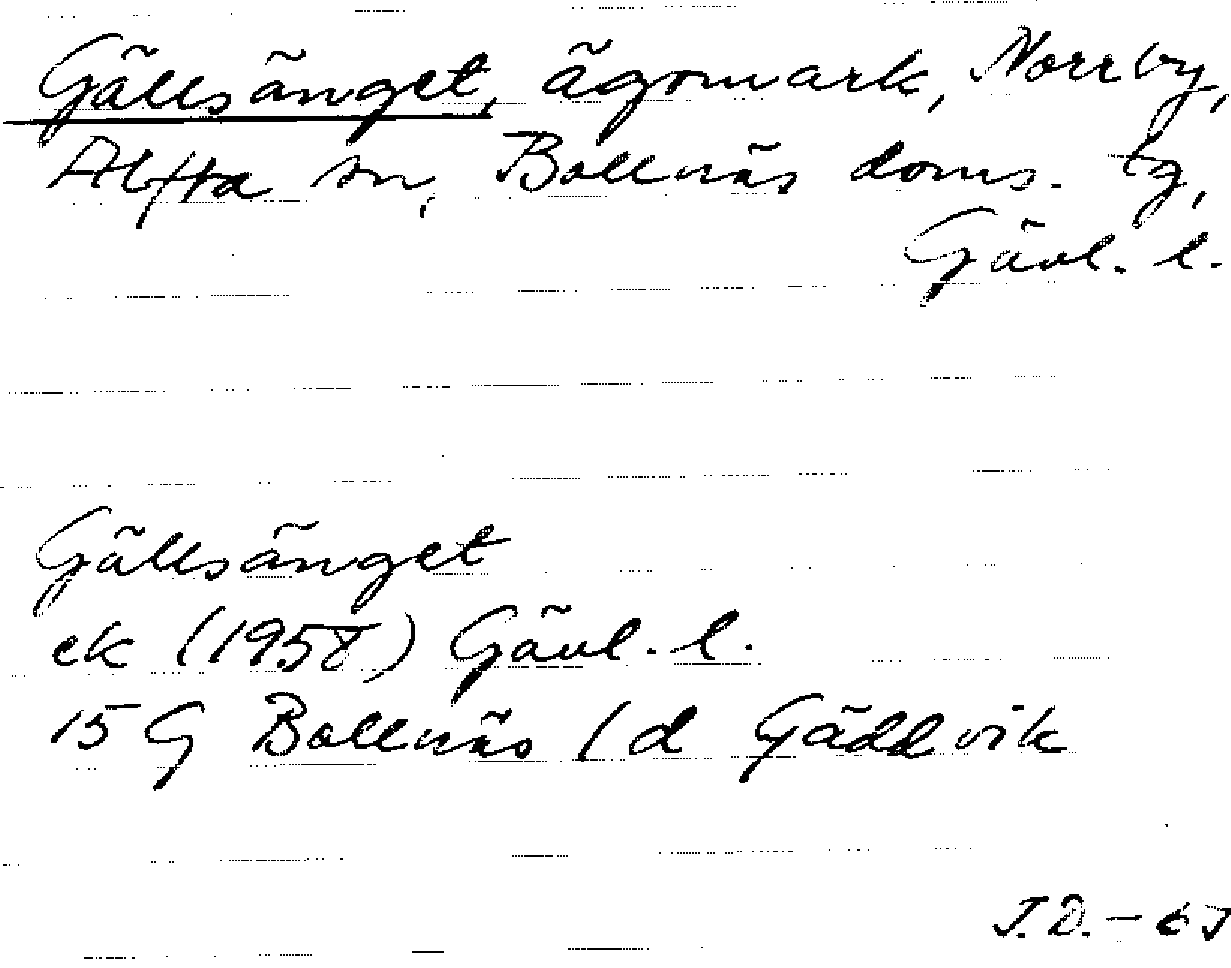 Gällsänget, ägomark, Norrby,
Alfta sn, Bollnäs doms. tg,
Gävl. l.
Gällsänget
ek (1958) Gävl. l.
15 G Bollnäs 1 d Gäddvik
J.D. –